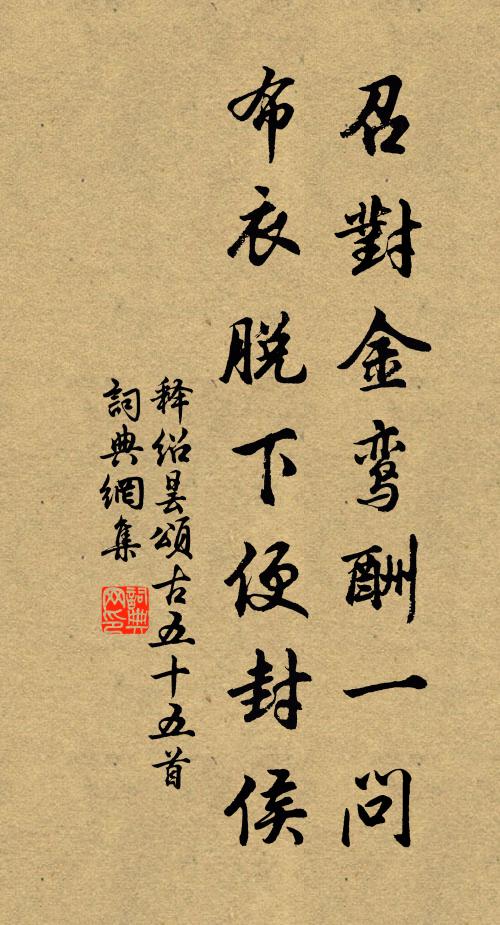 召對金鸾酬一問
布衣脱下便封侯
释绍昙頌古五十五首
詞典網集
詞典网印